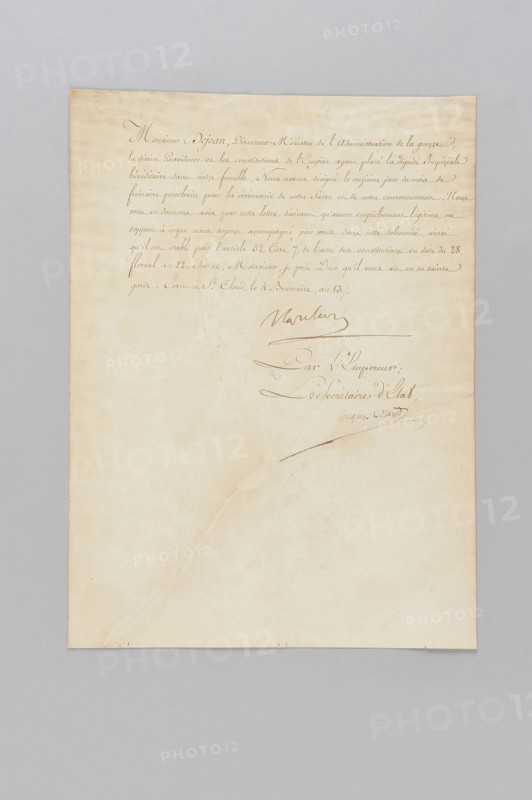 Monsieur Dejean, Directeur Ministre de l'Administration de la guerre,
la divine Providence et les constitutions de l'Empire ayant placé la dignité Impériale
héréditaire dans notre famille, Nous avons désigné le onzième jour du mois de
frimaire prochain pour la cérémonie de notre Sacre et de notre couronnement. Nous
vous en donnons avis par cette lettre désirant qu'aucun empêchement légitime ne
s'oppose à ce que nous soyons accompagné par vous dans cette solemnité, ainsi
qu'il est établi par l'article 52. titre 7. de l'acte des constitutions en date du 28
floréal an 12. Sur ce, Monsieur, je prie Dieu qu'il vous ait en sa sainte
garde. Écrit à St. Cloud, le 4 Brumaire an 13.
Napoleon
Par l'Empereur;
Le Secrétaire d'Etat,
Hugues Maret
PHOTO12